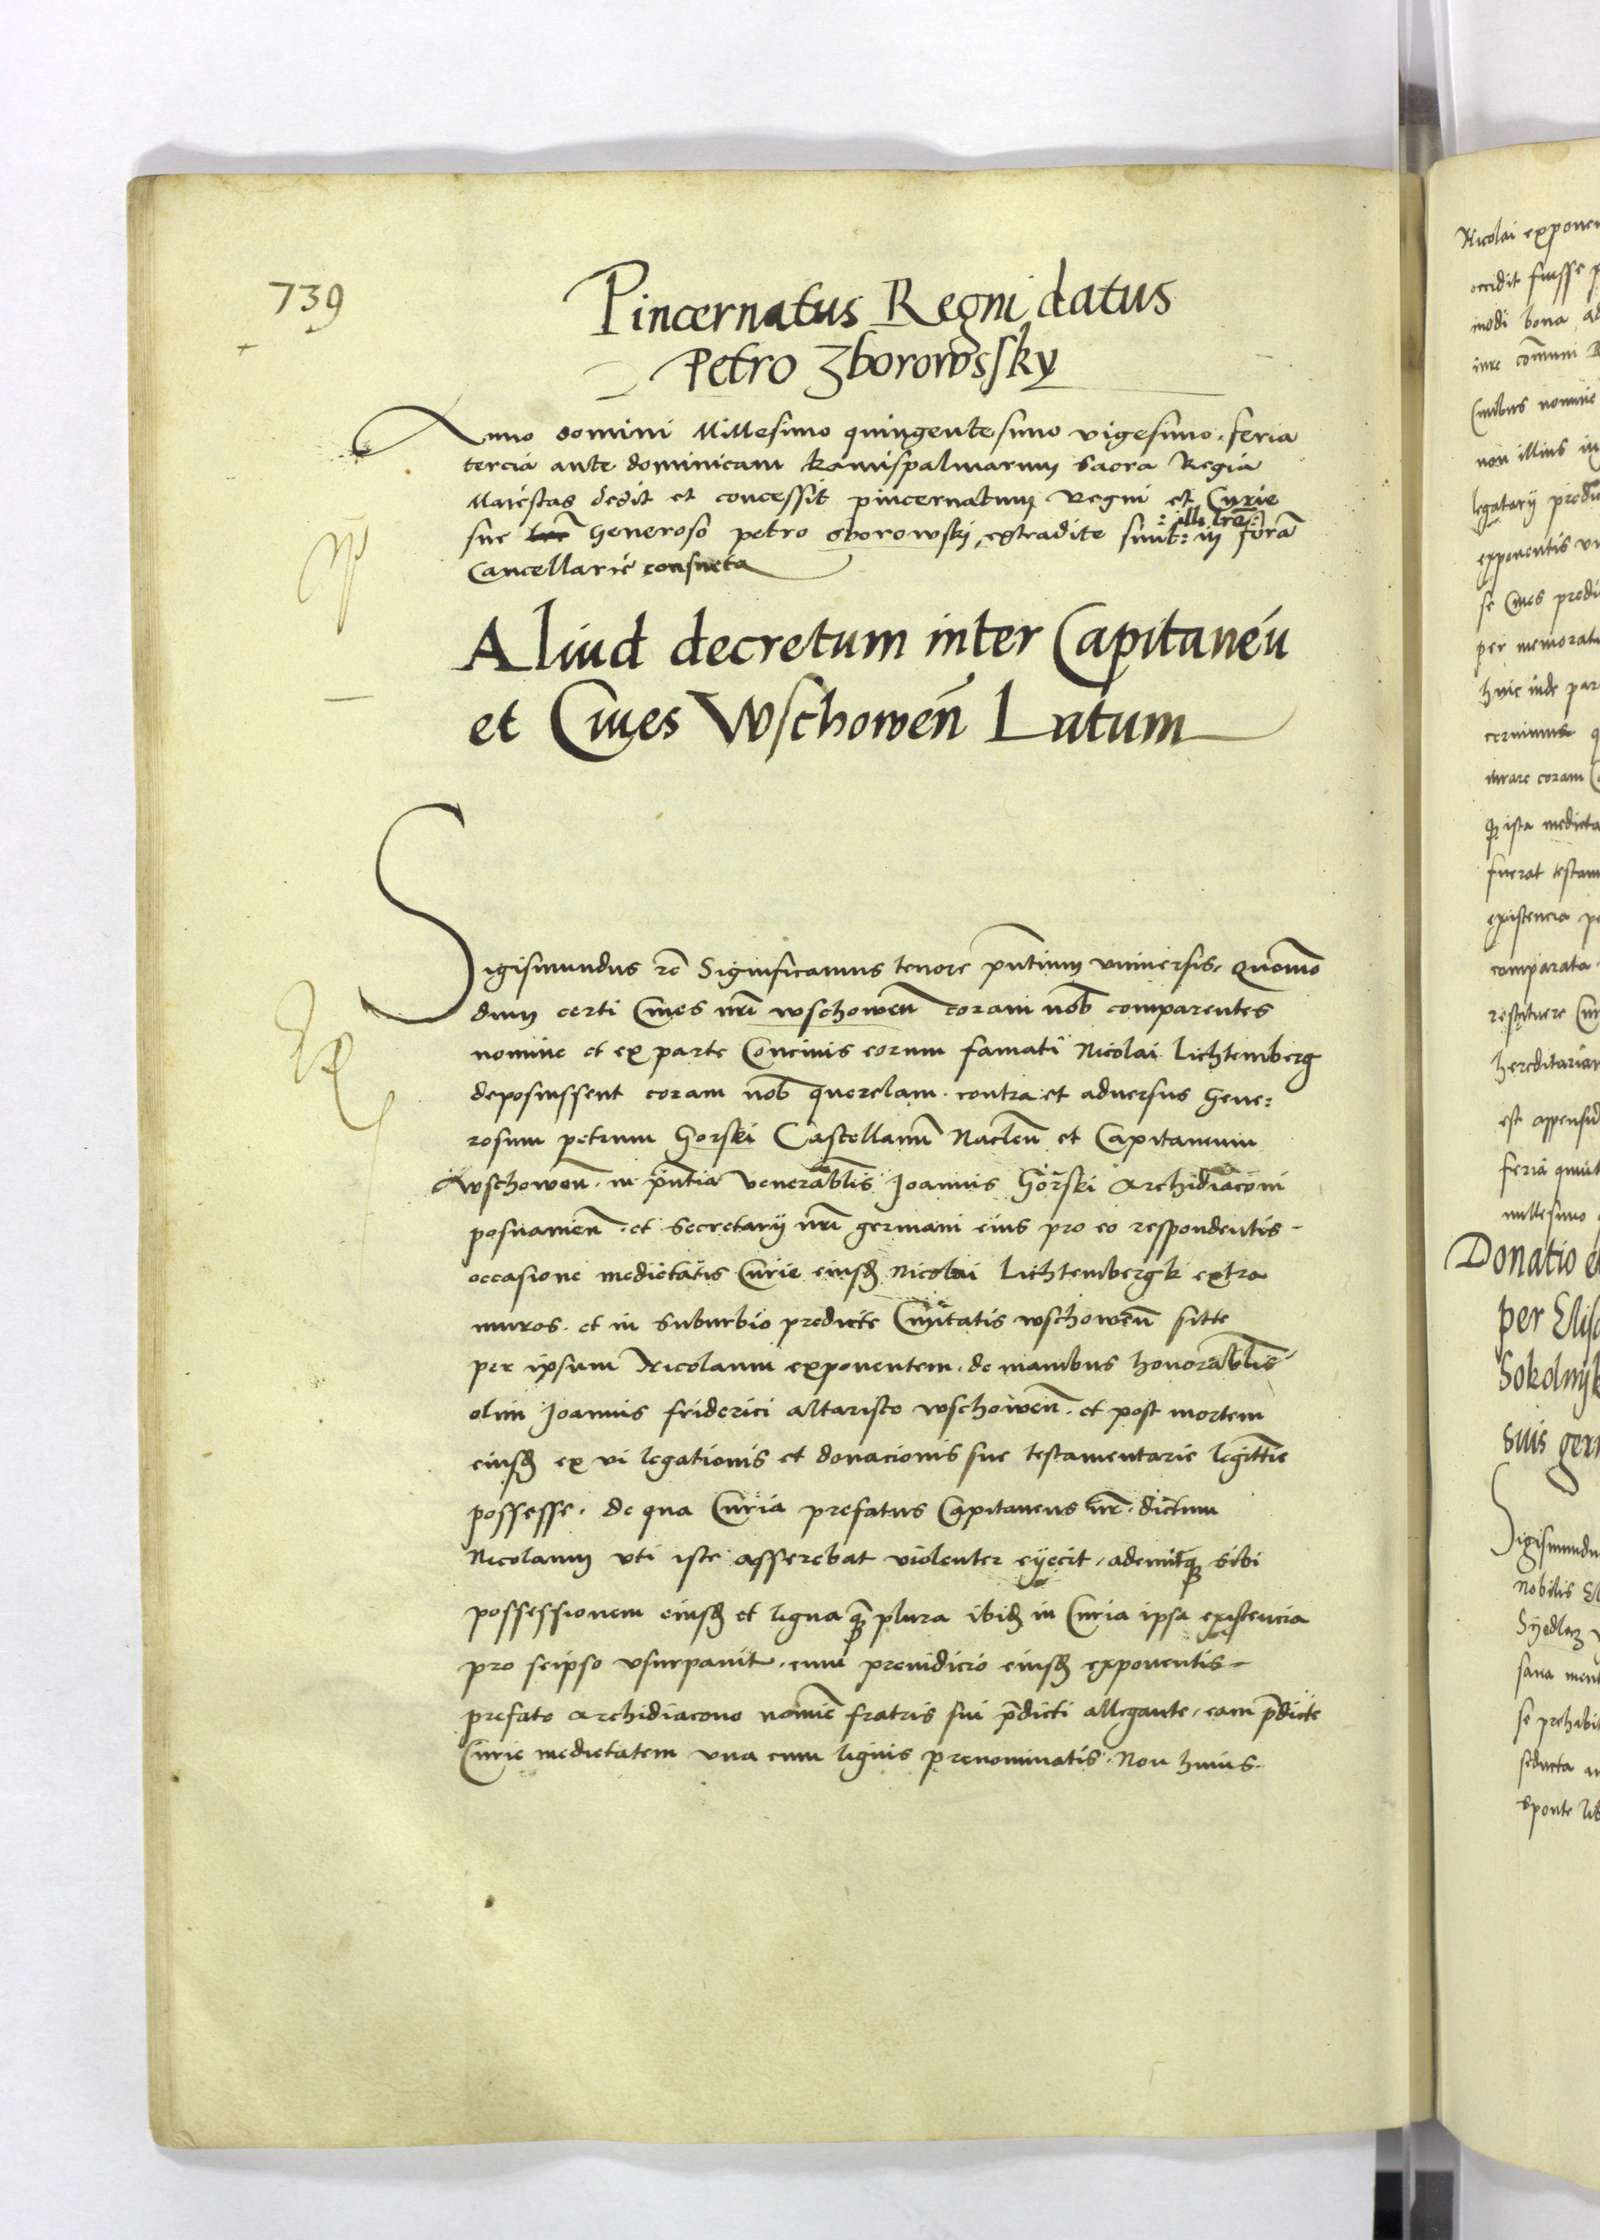 739
Pincernatus Regni datus
Petro Zborowssky
Anno domini Millesimo quingentesimo vigesimo. feria
tercia ante dominicam Ramispalmarum sacra Regia
Maiestas dedit et concessit pincernatum Regni et Curie
sue Generoso petro sborowski, extradite sunt: :ille lrē: in forā
Cancellarie consueta
Aliud decretum inter Capitaneū
et Ciues Wschoweñ Latum
Sigismundus rē Significamus tenore pñtium vniuersis. Quomo
dum certi Ciues nrī wschoweñ coram nob̄ comparentes
nomine et ex parte Conciuis eorum famati Nicolai Lichtemberg
deposuissent coram nob̄ querelam. contra et aduersus Gene:
rosum petrum Gorski Castellanū Nacleñ et Capitaneum
wschoweñ. in pñtia venerablīs Joannis Gorski Archidiaconi
posnanieñ. et secretarij nrī germani eius pro eo respondentis.
occasione medietatis Curie eiusd̄ Nicolai Lichtembergk extra
muros. et in suburbio predicte Ciuitatis wschoweñ sitte
per ipsum Nicolaum exponentem. de manibus honorablīs
olim Joannis friderici altariste wschoweñ. et post mortem
eiusd̄ ex vi legationis et donacionis sue testamentarie legittīe
possesse. de qua Curia prefatus Capitaneus nr̄. dictum
Nicolaum vti iste asserebat violenter eÿecit, ademitq̄ sibi
possessionem eiusd̄ et ligna q̄ plura ibid̄ in Curia ipsa existencia
pro seipso vsurpauit. cum preiudicio eiusd̄ exponentis.
prefato Archidiacono nomīe fratris sui p̄dicti allegante, eam p̄dicte
Curie medietatem vna cum lignis prenominatis. Non huius.
Nicolai
occidit fuisse
modi bona
iure com̄uni
Ciuibus nomine
non illius
legatarij
exponentis
se Ciues
per
huic inde
iurare coram
ista
fuerat
existencia
comparata.
restituere
est
feria
millesimo
Donatio
per
suis
Sigismundus
Nobilis
sana
se
sponte